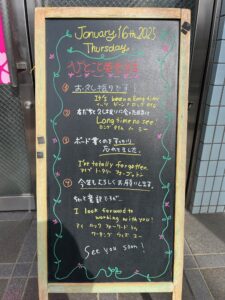 January 16th 2025
Thursday
ひとこと英会話
① お久し振りです
It's been a long time
イッツ ビーン ア ロング タイム
② 友だちと久し振りに会った時は
Long time no see!
ロング タイム ノー シー
③ ボード書くのすっかり
忘れてました。
I've totally forgotten
アイブ トータリー フォーゴットン
④ 今年もよろしくお願いします。
I look forward to
working with you!
アイ ルック フォーワード トゥ
ワーキング ウィズ ユー
See you soon!